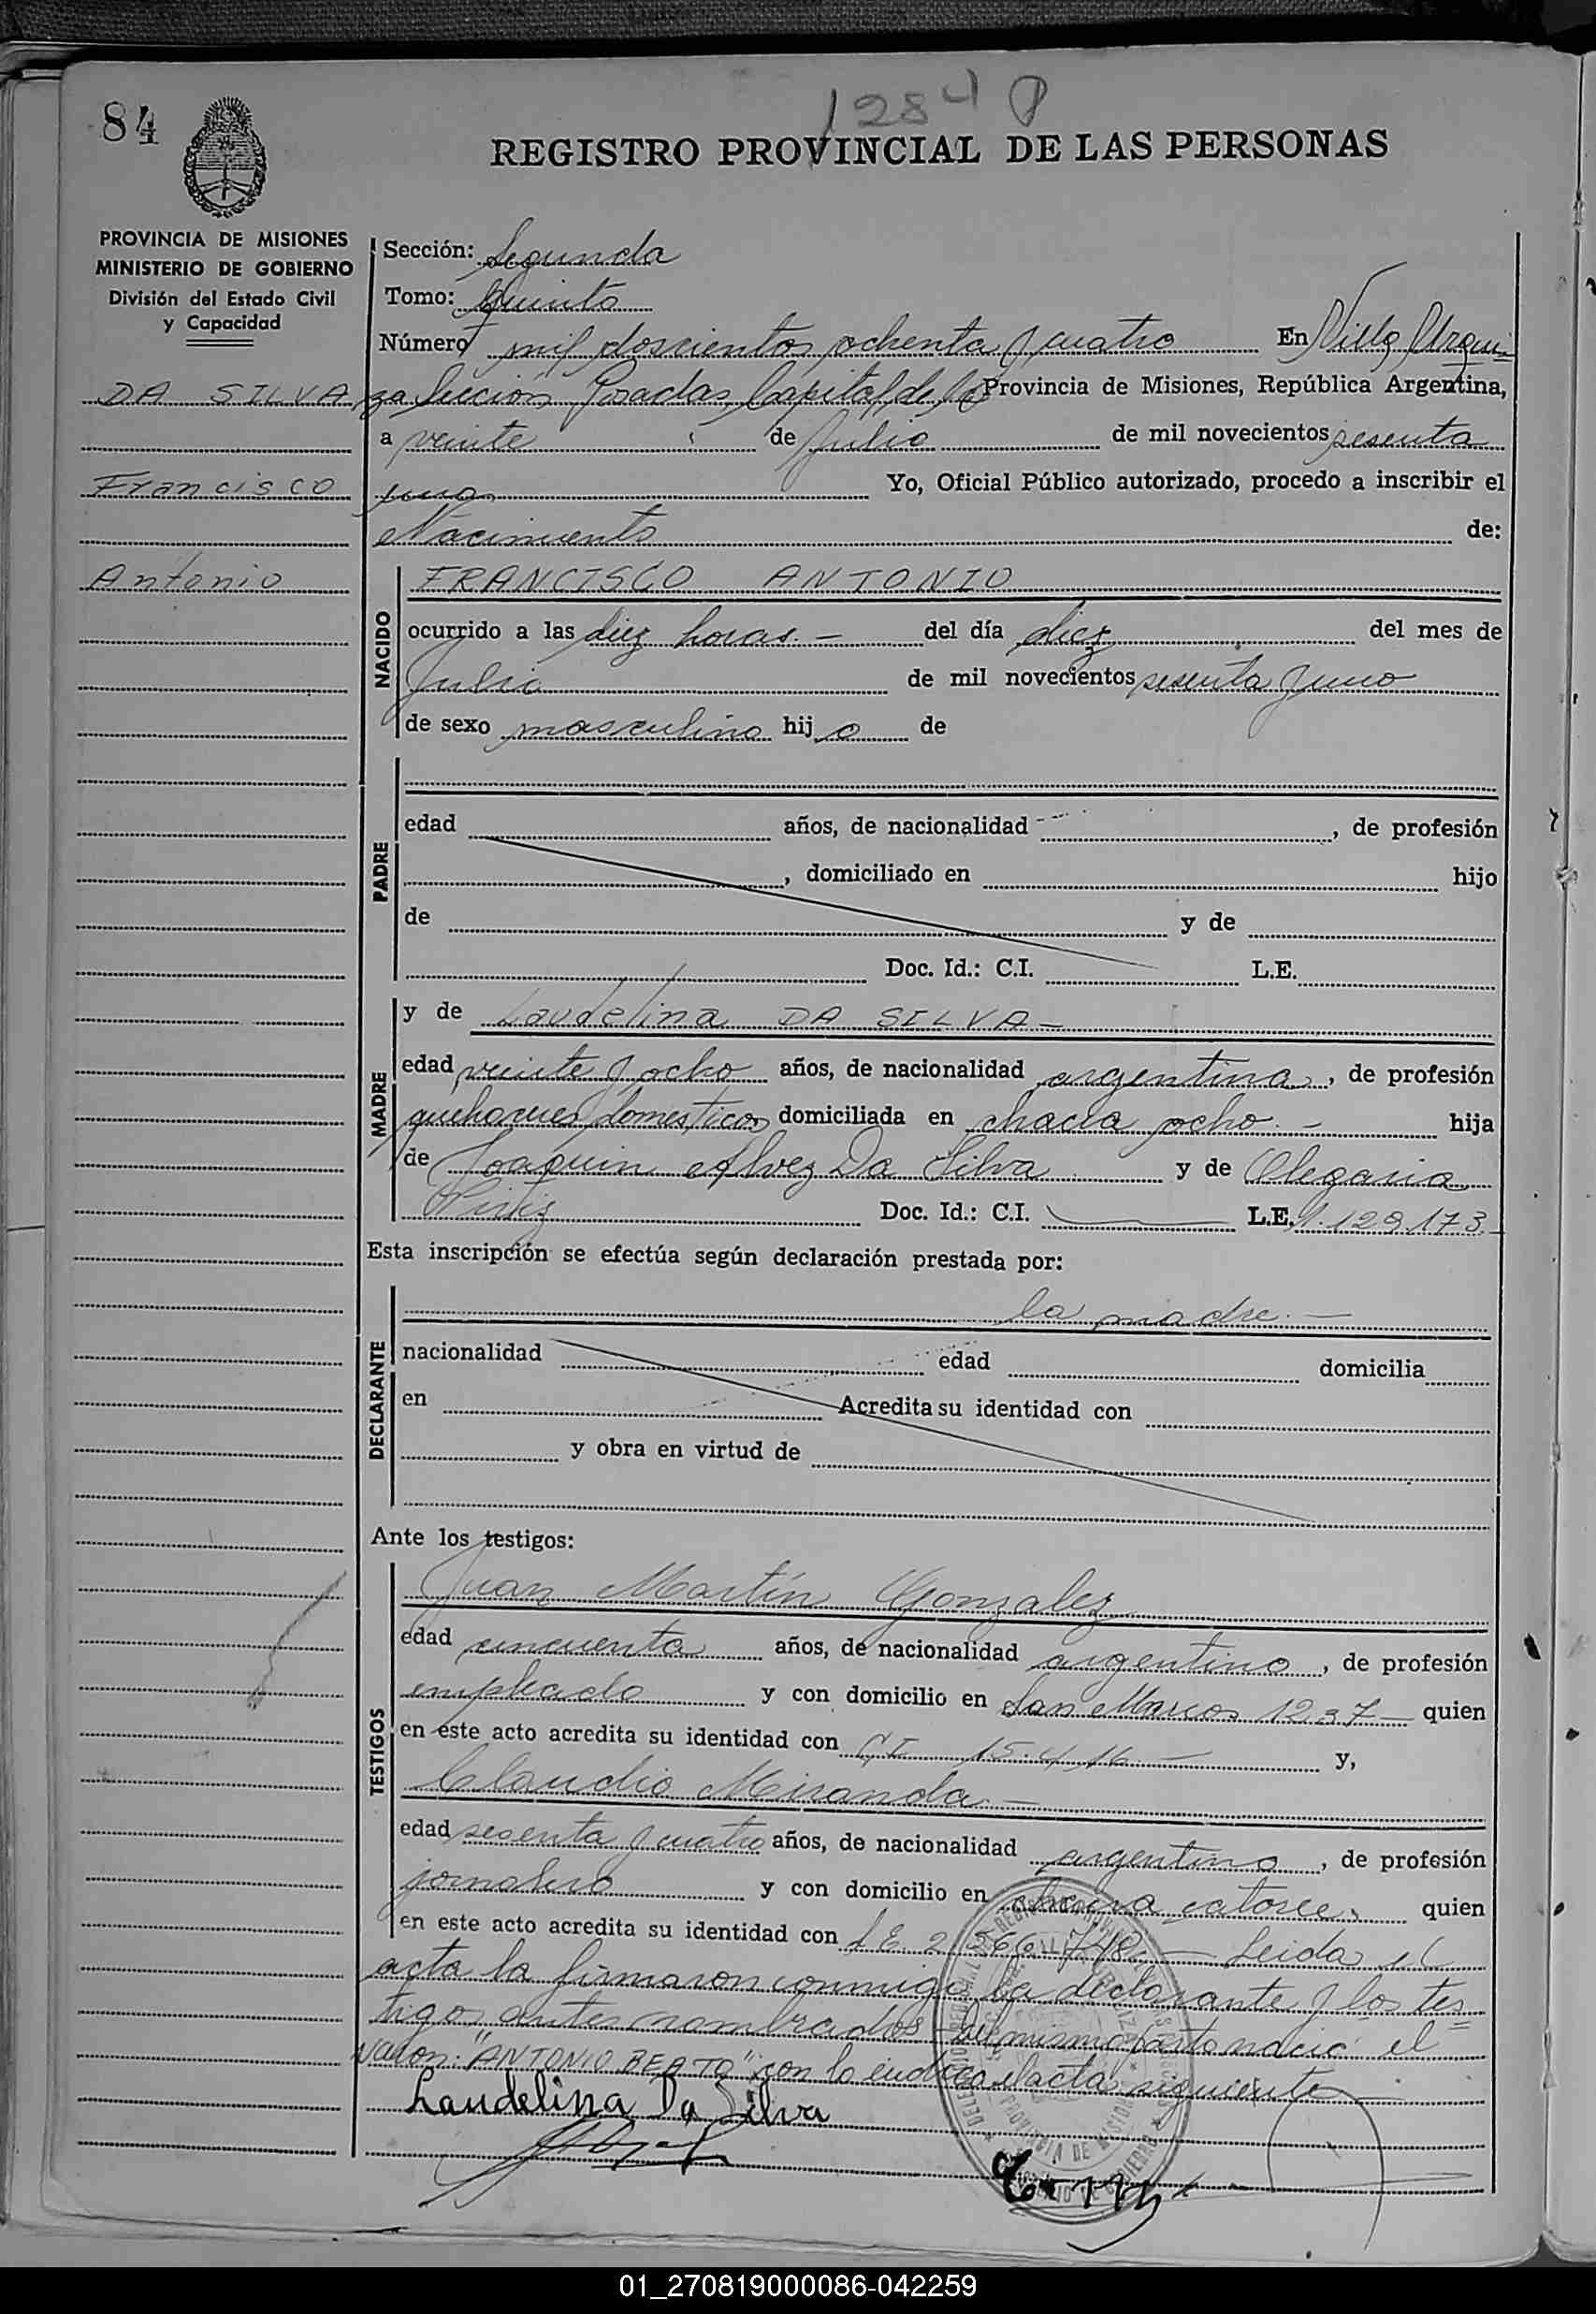 84
1284
REGISTRO PROVINCIAL DE LAS PERSONAS
PROVINCIA DE MISIONES
MINISTERIO DE GOBIERNO
División del Estado Civil
y Capacidad
DA SILVA
Francisco
Antonio
Sección: Segunda
Tomo: Quinto
Número mil doscientos ochenta y cuatro En Villa Urqui=
za Sección Posadas, Capital de la Provincia de Misiones, República Argentina,
a veinte de Julio de mil novecientos sesenta
uno Yo, Oficial Público autorizado, procedo a inscribir el
Nacimiento de:
NACIDO
FRANCISCO ANTONIO
ocurrido a las diez horas.- del día diez del mes de
Julio de mil novecientos sesenta y uno
de sexo masculino hijo de
PADRE
edad años, de nacionalidad , de profesión
, domiciliado en hijo
de y de
Doc. Id.: C.I. L.E.
MADRE
y de Laudelina DA SILVA-
edad veinte y ocho años, de nacionalidad argentina, de profesión
quehaceres domesticos domiciliada en chacra ocho.- hija
de Joaquin Alvez Da Silva y de Olegaria
Doc. Id.: C.I. L.E. 1.129.173
Esta inscripción se efectúa según declaración prestada por:
DECLARANTE
la madre.-
nacionalidad edad domicilia
en Acredita su identidad con
y obra en virtud de
Ante los testigos:
TESTIGOS
Juan Martín Gonzalez
edad cincuenta años, de nacionalidad argentino, de profesión
empleado y con domicilio en San Marcos 1237- quien
en este acto acredita su identidad con CI 15.416- y,
Claudio Miranda.-
edad sesenta y cuatro años, de nacionalidad argentino, de profesión
jornalero y con domicilio en chacra catorce, quien
en este acto acredita su identidad con LE 2.566.748.- Leida el
acta la firmaron conmigo la declarante y los tes=
tigos antes nombrados. Del mismo parto nació el
varon: "ANTONIO BERTO" con lo indica el acta siguiente
Laudelina Da Silva
01_270819000086-042259